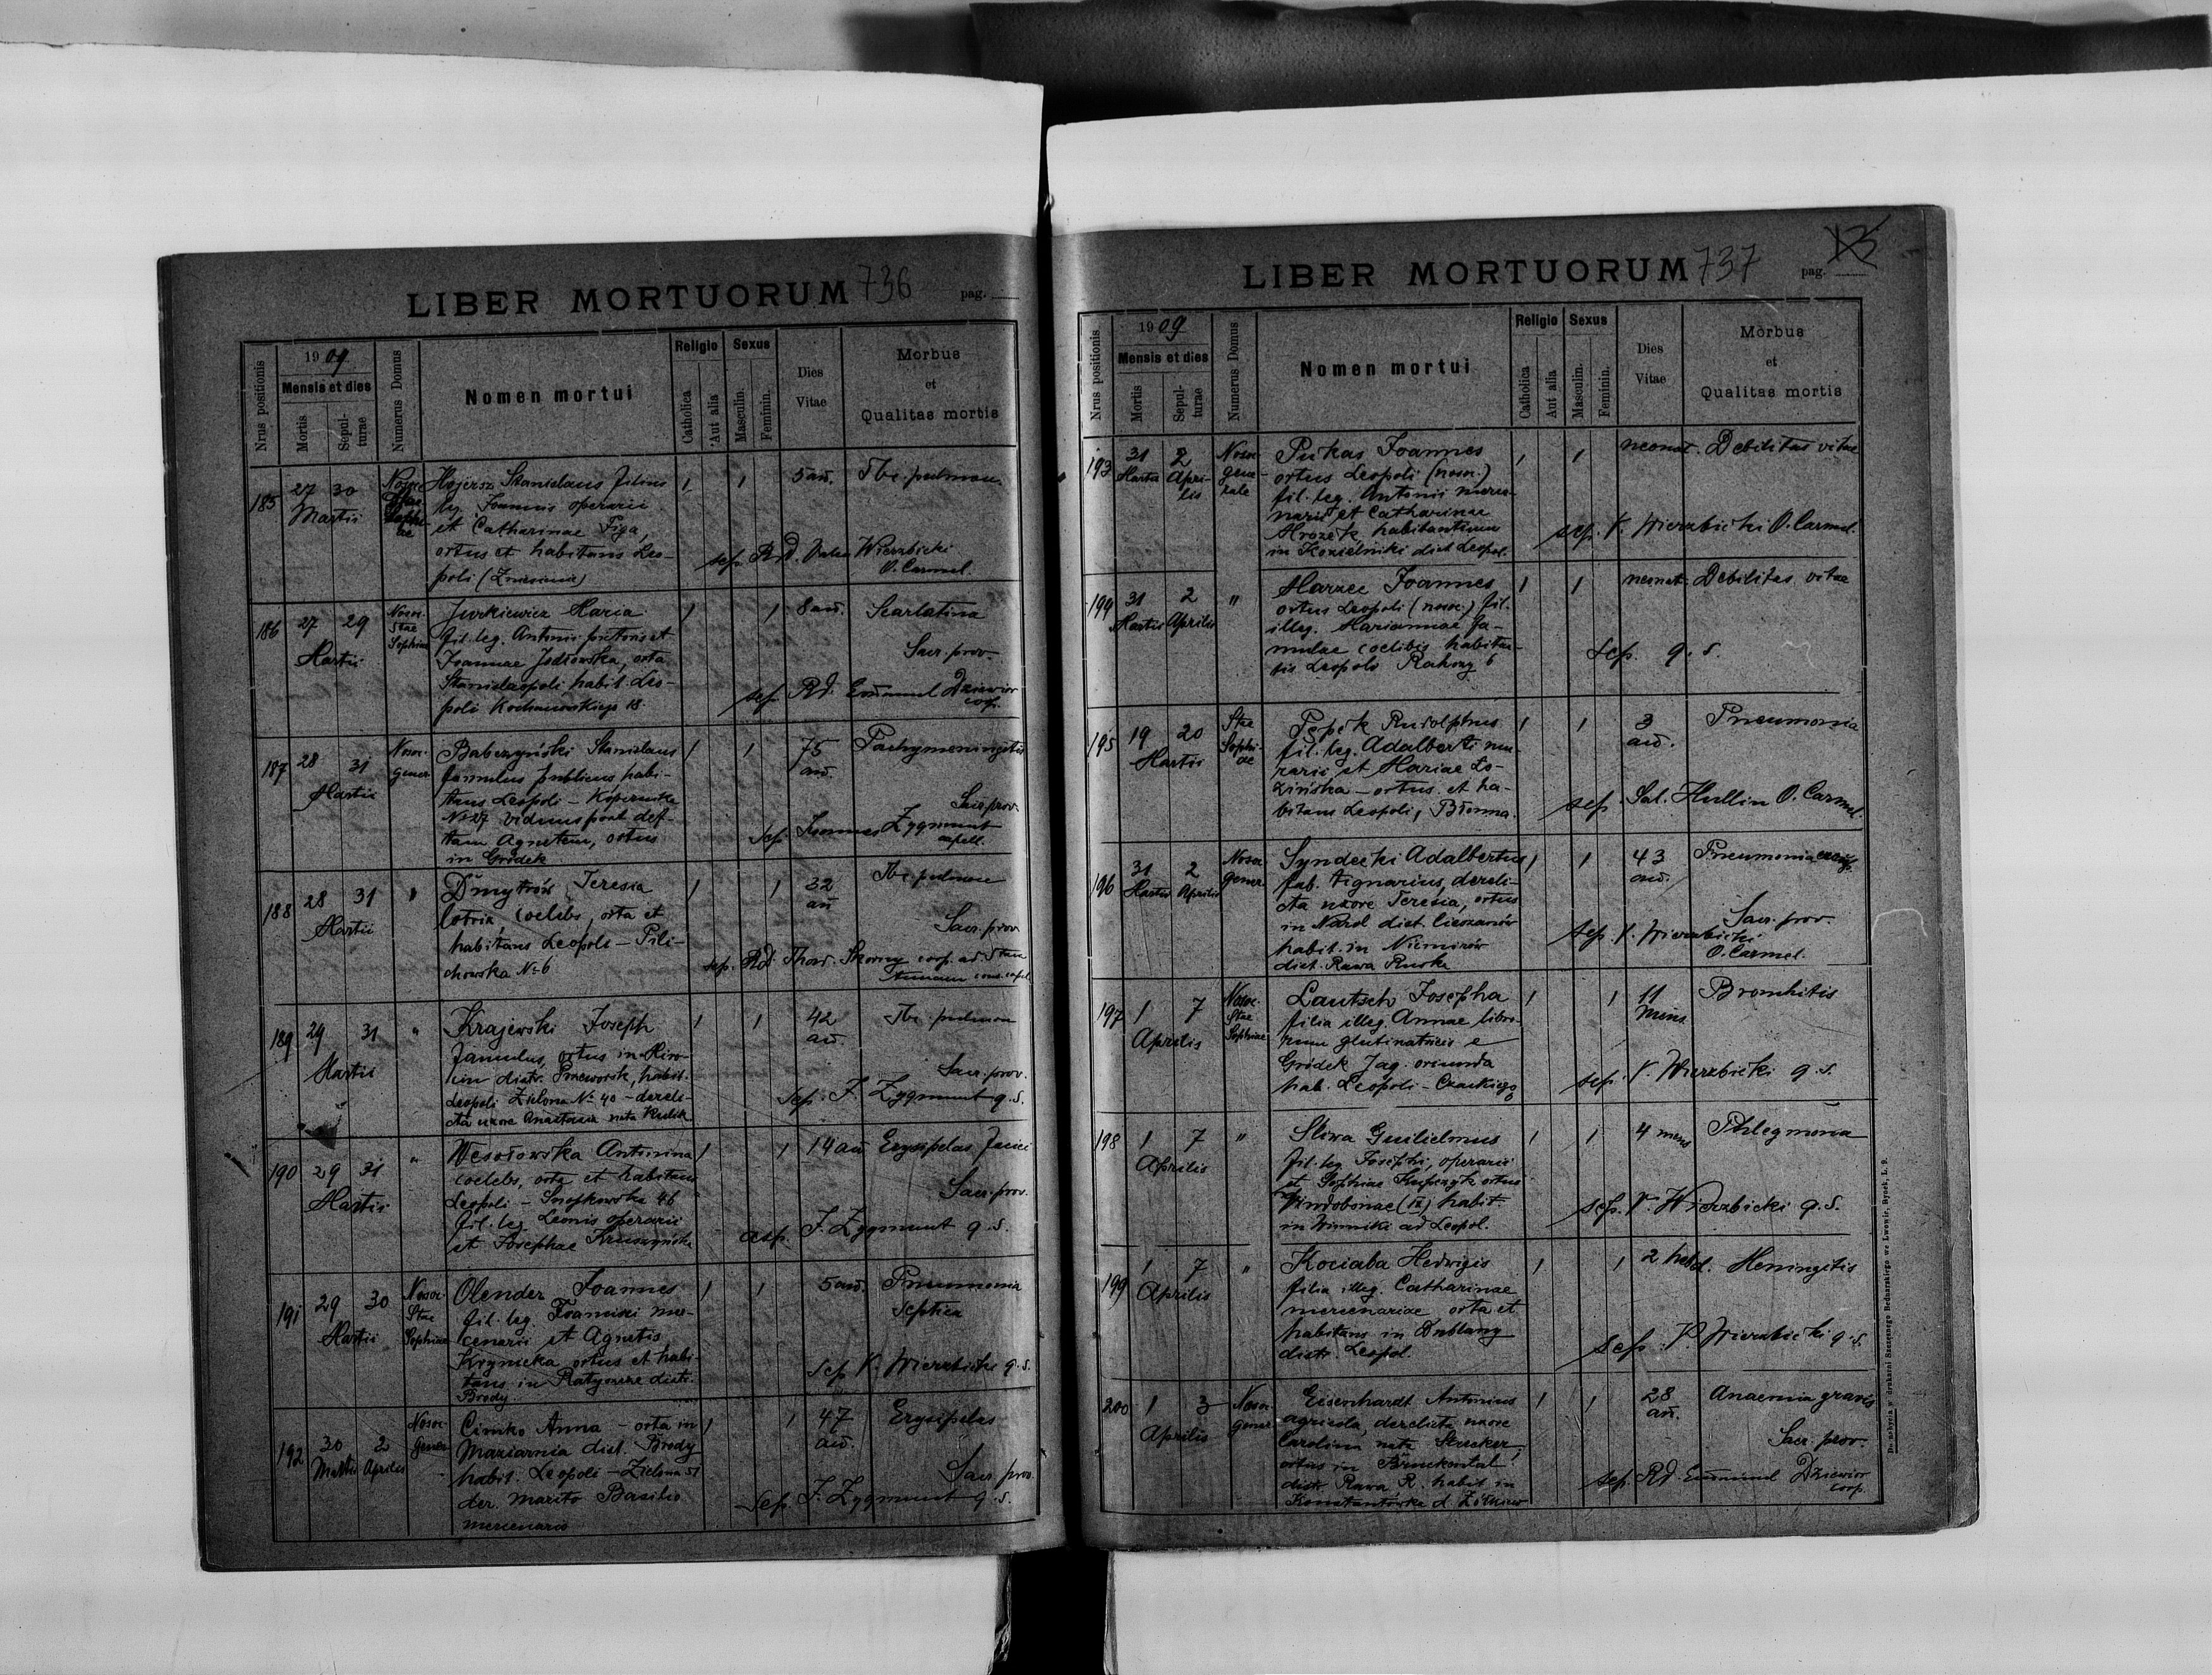 LIBER MORTUORUM 736 pag.
Nrus positionis
1909
Mensis et dies
Mortis
Sepulturae
Numerus Domus
Nomen mortui
Religio
Catholica
Aut alia
Sexus
Masculin.
Feminin.
Dies Vitae
Morbus et Qualitas mortis
185 27 30 Martii Nosoc. Stae Sophiae
Stanislaus filius
leg. Joannis operarii
et Catharinae Figa,
ortus et habitans Leo-
poli (Zniesienie)
1 1 5 an. Tbc. pulmon.
sep. Rd. Wierzbicki
O. Carmel.
186 27 29 Martii Nosoc. Stae Sophiae
Jurkiewicz Maria
fil. leg. Antonii pictoris et
Joannae Jodłowska, orta
Stanislaopoli habit. Leo-
poli Kochanowskiego 18.
1 1 8 an. Scarlatina
Sacr. prov.
sep. Rd. Emmanuel Dziewior
coop.
187 28 31 Martii Nosoc. gener.
Babczyński Stanislaus
famulus publicus habi-
tans Leopoli - Kopernika
№ 27 viduus post def-
tam Agnetem, ortus
in Gródek
1 1 75 an. Pachymeningitis
Sacr. prov.
sep. Joannes Zygmunt
capell.
188 28 31 Martii "
Dmytrów Teresia
lotrix, coelebs, orta et
habitans Leopoli - Pili-
chowska № 6
1 1 32 an. Tbc. pulmon
Sacr. prov.
sep. Rd. Thom. Skorny coop. ad Stam
Annam
189 29 31 Martii "
Krajewski Joseph
famulus, ortus in Miro-
cin distr. Przeworsk, habit.
Leopoli Zielona № 40 - dereli-
cta uxore Anastasia nata Kulik
1 1 42 an. Tbc. pulmon
Sacr. prov.
sep. J. Zygmunt q. s.
190 29 31 Martii "
Wesołowska Antonina
coelebs, orta et habitans
Leopoli - Snopkowska 46
fil. leg. Leonis operarii
et Josephae Kruszyńska
1 1 14 an Erysipelas faciei
Sacr. prov.
sep. J. Zygmunt q. s.
191 29 30 Martii Nosoc. Stae Sophiae
Olender Joannes
fil. leg. Francisci mer-
cenarii et Agnetis
Krynicka ortus et habi-
tans in distr.
Brody
1 1 5 an. Pneumonia
septica
sep V. Wierzbicki q. s.
192 30 Martii 2 Aprilis Nosoc. gener.
Cimko Anna - orta in
Maziarnia dist. Brody
habit. Leopoli - Zielona 51
der. marito Basilio
mercenario
1 1 47 an. Erysipelas
Sacr. prov.
sep. J. Zygmunt q. s.
LIBER MORTUORUM 737 pag. 13
Nrus positionis
1909
Mensis et dies
Mortis
Sepulturae
Numerus Domus
Nomen mortui
Religio
Catholica
Aut alia
Sexus
Masculin.
Feminin.
Dies Vitae
Morbus et Qualitas mortis
193 31 Martii 2 Aprilis Nosoc. generale
Pukas Joannes
ortus Leopoli (nosoc.)
fil. leg. Antonii merce-
narii et Catharinae
Mrozek habitantium
in Kozielniki dist Leopol.
1 1 neonat. Debilitas vitae
sep. V. Wierzbicki O. Carmel.
194 31 Martii 2 Aprilis "
Marzec Joannes
ortus Leopoli (nosoc.) fil.
illeg. Mariannae fa-
mulae coelibis habitan-
tis Leopoli Rahozy 6
1 1 neonat. Debilitas vitae
sep. q. s.
195 19 20 Martii Stae Sophiae
Pępek Rudolphus
fil. leg. Adalberti mu-
rarii et Mariae Ło-
zińska - ortus et ha-
bitans Leopoli, Błonna.
1 1 3 an. Pneumonia
sep. Sal. Hullin O. Carmel.
196 31 Martii 2 Aprilis Nosoc. gener.
Syndecki Adalbertus
fab. lignarius, dereli-
cta uxore Teresia, ortus
in Narol dist. Cieszanów
habit. in Niemirów
dist. Rawa Ruska
1 1 43 an. Pneumonia
Sacr. prov.
sep V. Wierzbicki
O. Carmel.
197 1 7 Aprilis Nosoc. Stae Sophiae
Lautsch Josepha
filia illeg. Annae libro-
rum glutinatricis e
Gródek Jag. oriunda
hab. Leopoli - Czackiego
6
1 1 11 mens. Bronchitis
sep. V. Wierzbicki q. s.
198 1 7 Aprilis "
Sliwa Guilielmus
fil. leg. Josephi, operarii
et Sophiae ortus
Vindobonae (IX) habit.
in Winniki ad Leopol.
1 1 4 mens Phlegmona
sep. V. Wierzbicki q. s.
199 1 7 Aprilis "
Kociaba Hedvigis
filia illeg. Catharinae
mercenariae orta et
habitans in Dublany
distr. Leopol.
1 1 2 hebd. Meningitis
sep. V. Wierzbicki q. s.
200 1 3 Aprilis Nosoc. gener
Eisenhardt Antonius
agricola, derelicta uxore
Carolina nata Stucker,
ortus in Bruckental
distr. Rawa R. habit in
Konstantówka d. Żółkiew
1 1 28 an. Anaemia gravis
Sacr. prov.
sep. Rd. Emmanuel Dziewior
coop.
Do nabycia w drukarni Szczęsnego Bednarskiego we Lwowie, Rynek, L. 9.